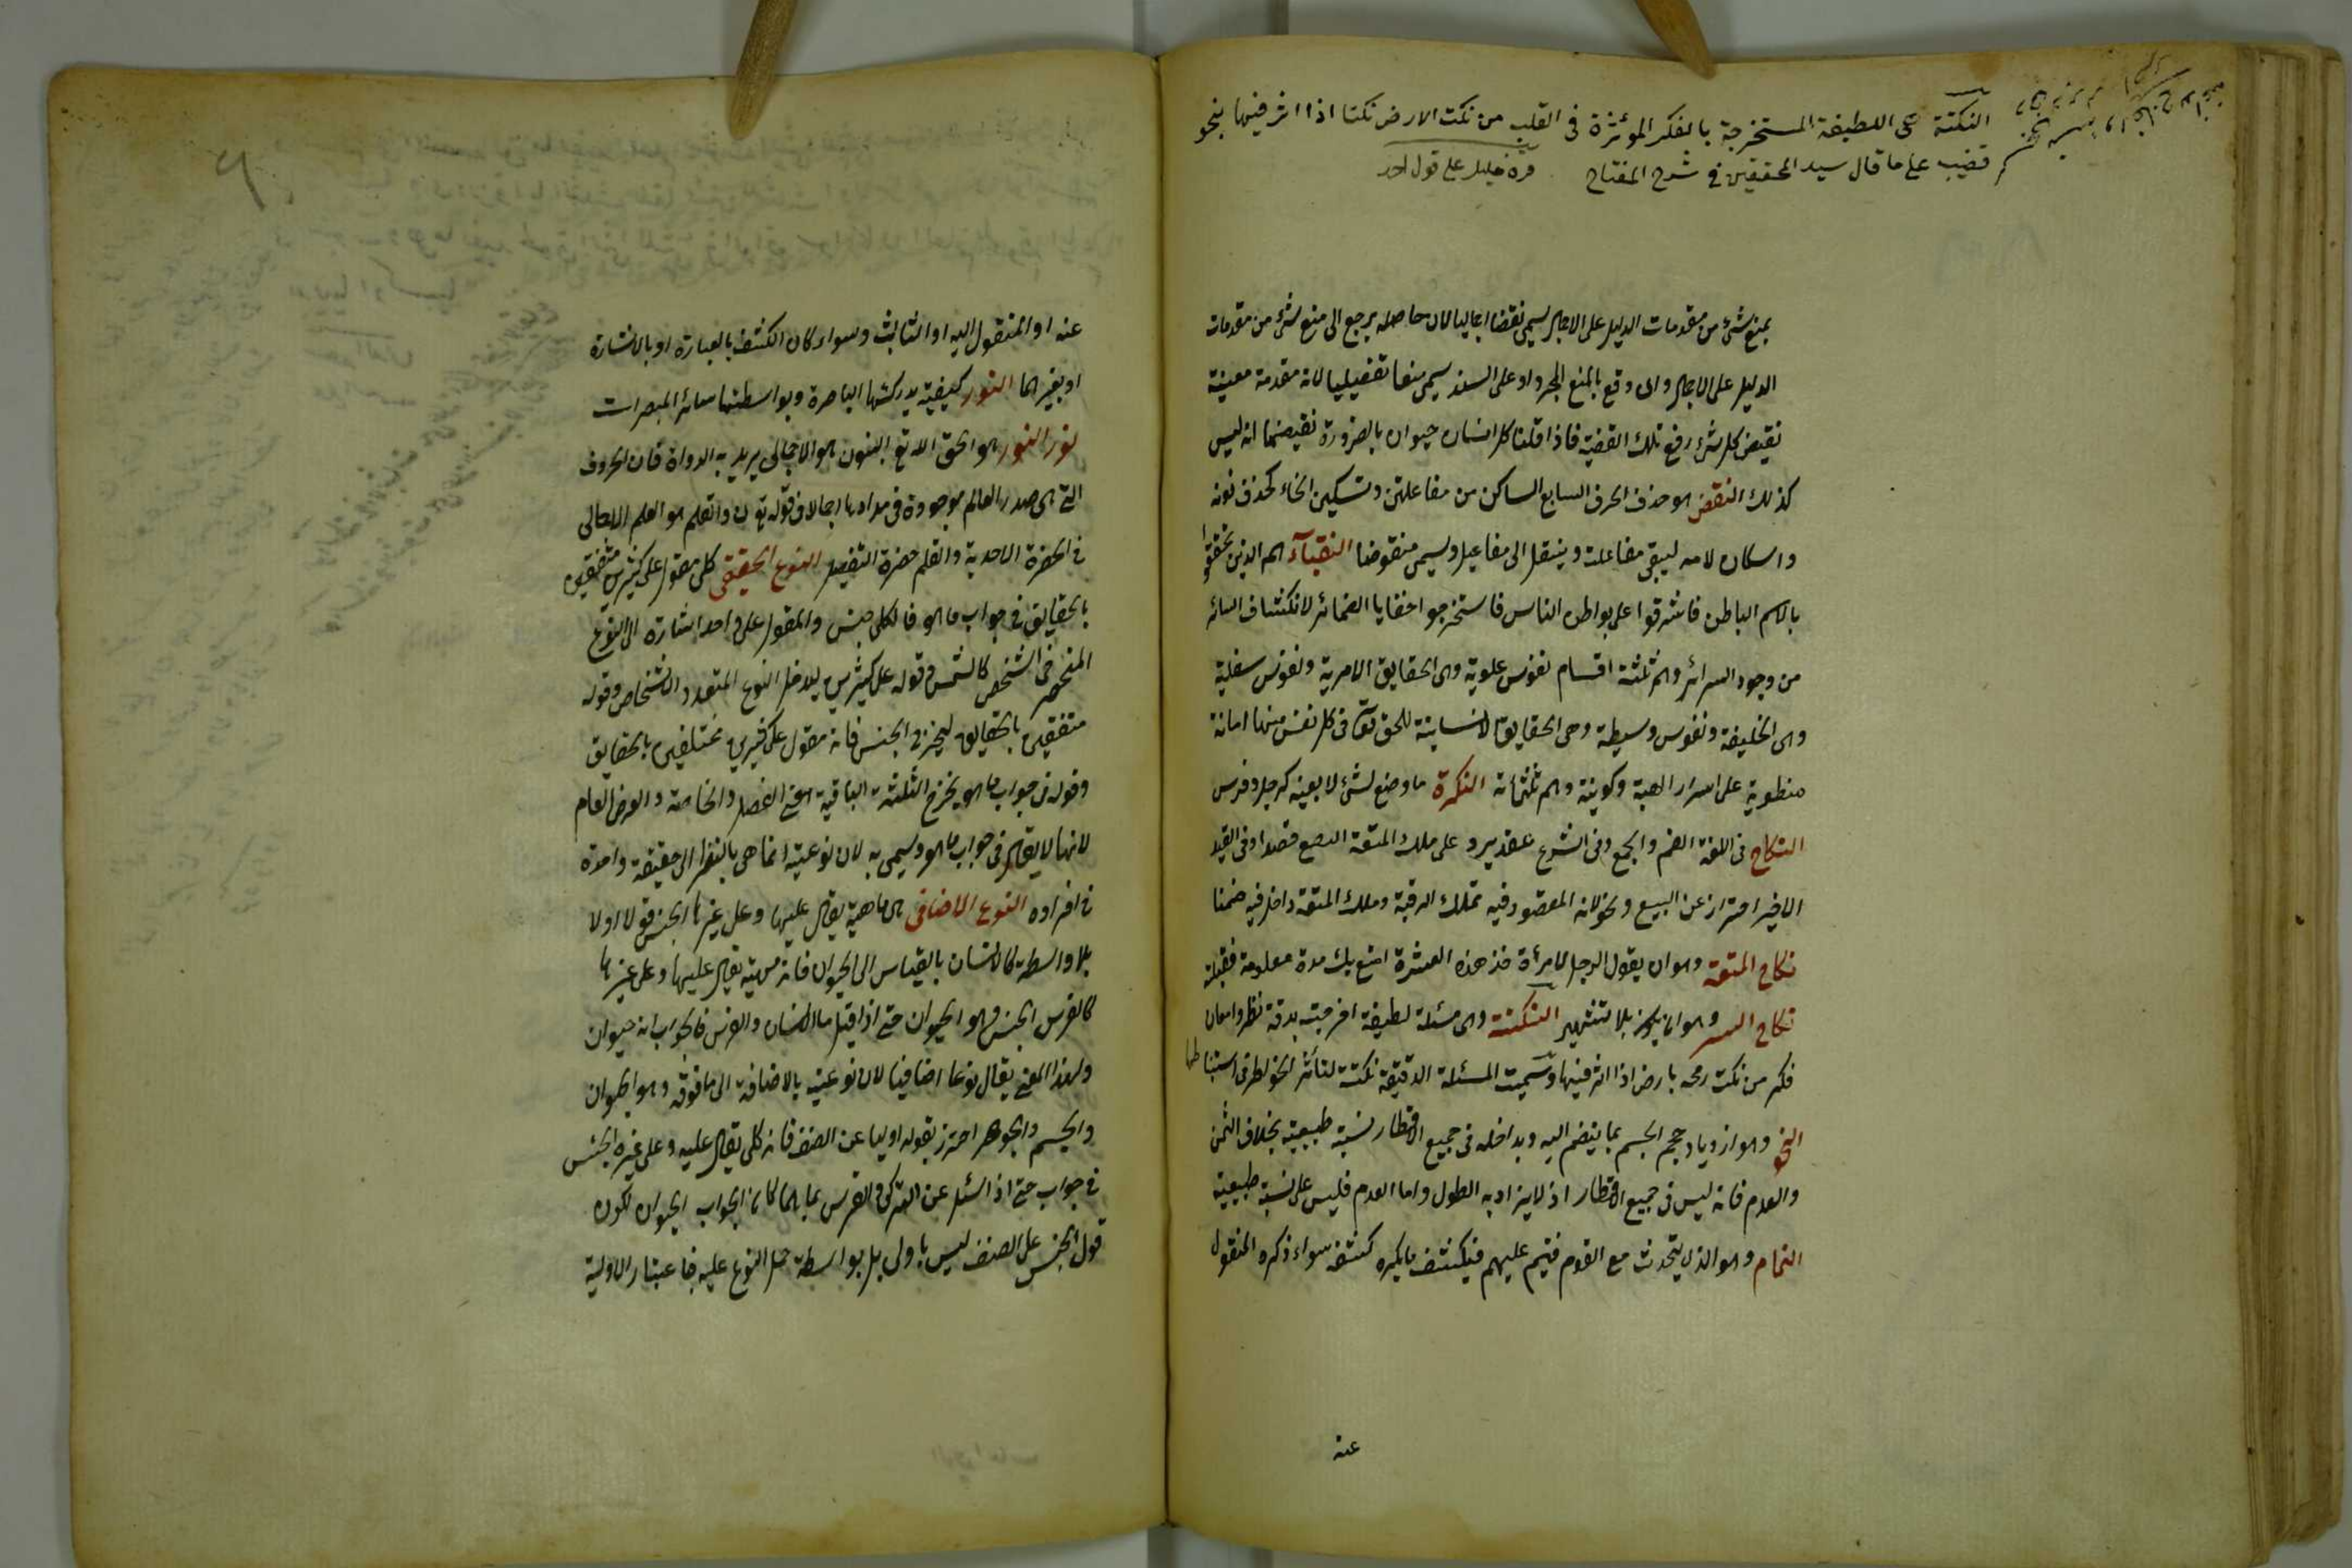 النكتة هى اللطيفة المستخرجة بالفكر المؤثرة فى القلب من نكت الارض نكتا اذا اثر فيها بنحو
قضيب على ما قال سيد المحققين فى شرح المفتاح قره خليل على قول احمد
بمنع شئ من مقدمات الدليل على الاجمال يسمى نقضا اجماليا لان حاصله يرجع الى منع شئ من مقدمات
الدليل على الاجمال وان وقع بالمنع المجرد او على السند يسمى منعا تفصيليا لانه مقدمة معينة
نقيض كل شئ رفع تلك القضية فاذا قلنا كل انسان حيوان بالضرورة نقيضها انه ليس
كذلك النقض هو حذف الحرف السابع الساكن من مفاعلتن وتسكين الخاء كحذف نونه
واسكان لامه ليبقى مفاعلت وينقل الى مفاعيل ويسمى منقوضا النقبآء هم الذين تحققوا
بالاسم الباطن فاشرقوا على بواطن الناس فاستخرجوا خفايا الضمائر لانكشاف الستائر
من وجوه السرائر وهم ثلثة اقسام نفوس علوية وهى الحقايق الامرية ونفوس سفلية
وهى الخليقة ونفوس وسيطة وهى الحقايق الانسانية للحق تعالى فى كل نفس منها امانة
منطوية على اسرار الهية وكونية وهم ثلثمائة النكرة ما وضع لشئ لا بعينه كرجل وفرس
النكاح فى اللغة الضم والجمع وفى الشرع عقد يرد على ملك المتعة البضع قصدا وفى القيد
الاخير احتراز عن البيع ونحو لان المقصود فيه تملك الرقبة وملك المتعة داخل فيه ضمنا
نكاح المتعة وهو ان يقول الرجل لامرأة خذ هذه العشرة اتمتع بك مدة معلومة فقبلته
نكاح السر وهو ان يكون بلا تشهير النكتة وهى مسئلة لطيفة اخرجت بدقة نظر وامعان
فكر من نكت رمحه بارض اذا اثر فيها وسميت المسئلة الدقيقة نكتة لتأثر الخواطر فى استنباطها
النمو وهو ازدياد حجم الجسم بما ينضم اليه ويداخله فى جميع الاقطار نسبة طبيعية بخلاف السمن
والورم فانه ليس فى جميع الاقطار اذ لا يزاد به الطول واما الورم فليس على نسبة طبيعية
النمام وهو الذى يتحدث مع القوم فينم عليهم فيكشف ما يكره كشفه سواء ذكره المنقول
عنه
عنه او المنقول اليه او الثالث وسواء كان الكشف بالعبارة او بالاشارة
او بغيرهما النور كيفية يدركها الباصرة وبواسطتها سائر المبصرات
نور النور هو الحق الله تع النون هو الاجمالى يريد به الدواة فان الحروف
التى هى صدر العالم موجودة فى مدادها اجمالا فى قوله تع ن والقلم هو العلم الاجمالى
فى الحضرة الاحدية والقلم حضرة التفصيل النوع الحقيقى كلى مقول على كثيرين متفقين
بالحقايق فى جواب ما هو فالكلى جنس والمقول على واحد اشارة الى النوع
المنحصر فى الشخص كالشمس وقوله على كثيرين ليدخل النوع المتعدد الاشخاص وقوله
متفقين بالحقايق ليخرج الجنس فانه مقول على كثيرين مختلفين بالحقايق
وقوله فى جواب ما هو يخرج الثلثة الباقية اعنى الفصل والخاصة والعرض العام
لانها لا يقال فى جواب ما هو ويسمى به لان نوعيته انما هى بالنظر الى حقيقة واحدة
فى افراده النوع الاضافى هى ماهية يقال عليها وعلى غيرها الجنس قولا اوليا
بلا واسطة كالانسان بالقياس الى الحيوان فانه مهية يقال عليها وعلى غيرها
كالفرس الجنس وهو الحيوان حتى اذا قيل ما الانسان والفرس فالجواب انه حيوان
ولهذا المعنى يقال نوعا اضافيا لان نوعيته بالاضافة الى ما فوقه وهو الحيوان
والجسم والجوهر احترز بقوله اوليا عن الصنف فانه كلى يقال عليه وعلى غيره الجنس
فى جواب حتى اذا سئل عن التركى والفرس بما هما كان الجواب الحيوان لكون
قول الجنس على الصنف ليس باولى بل بواسطة حمل النوع عليه فاعتبار الاولية